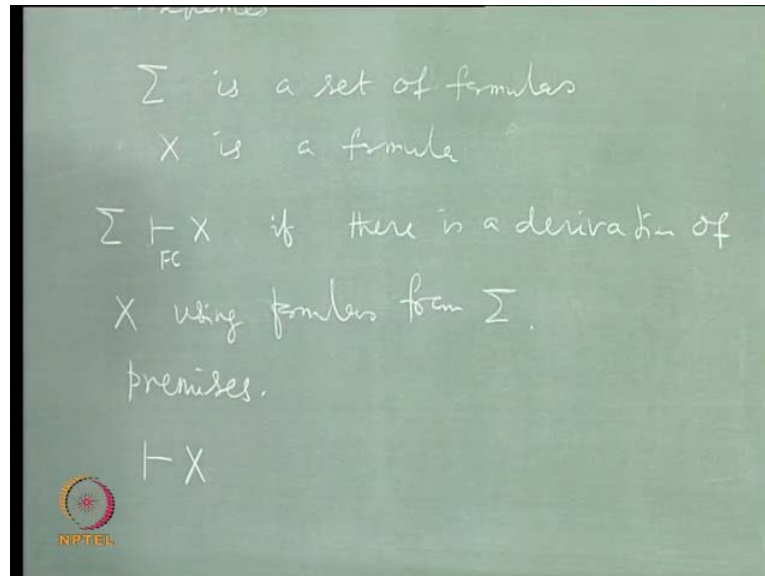 Σ is a set of formulas
X is a formula
Σ ⊢ X if there is a derivation of
FC
X using formulas from Σ.
premises.
⊢ X
NPTEL